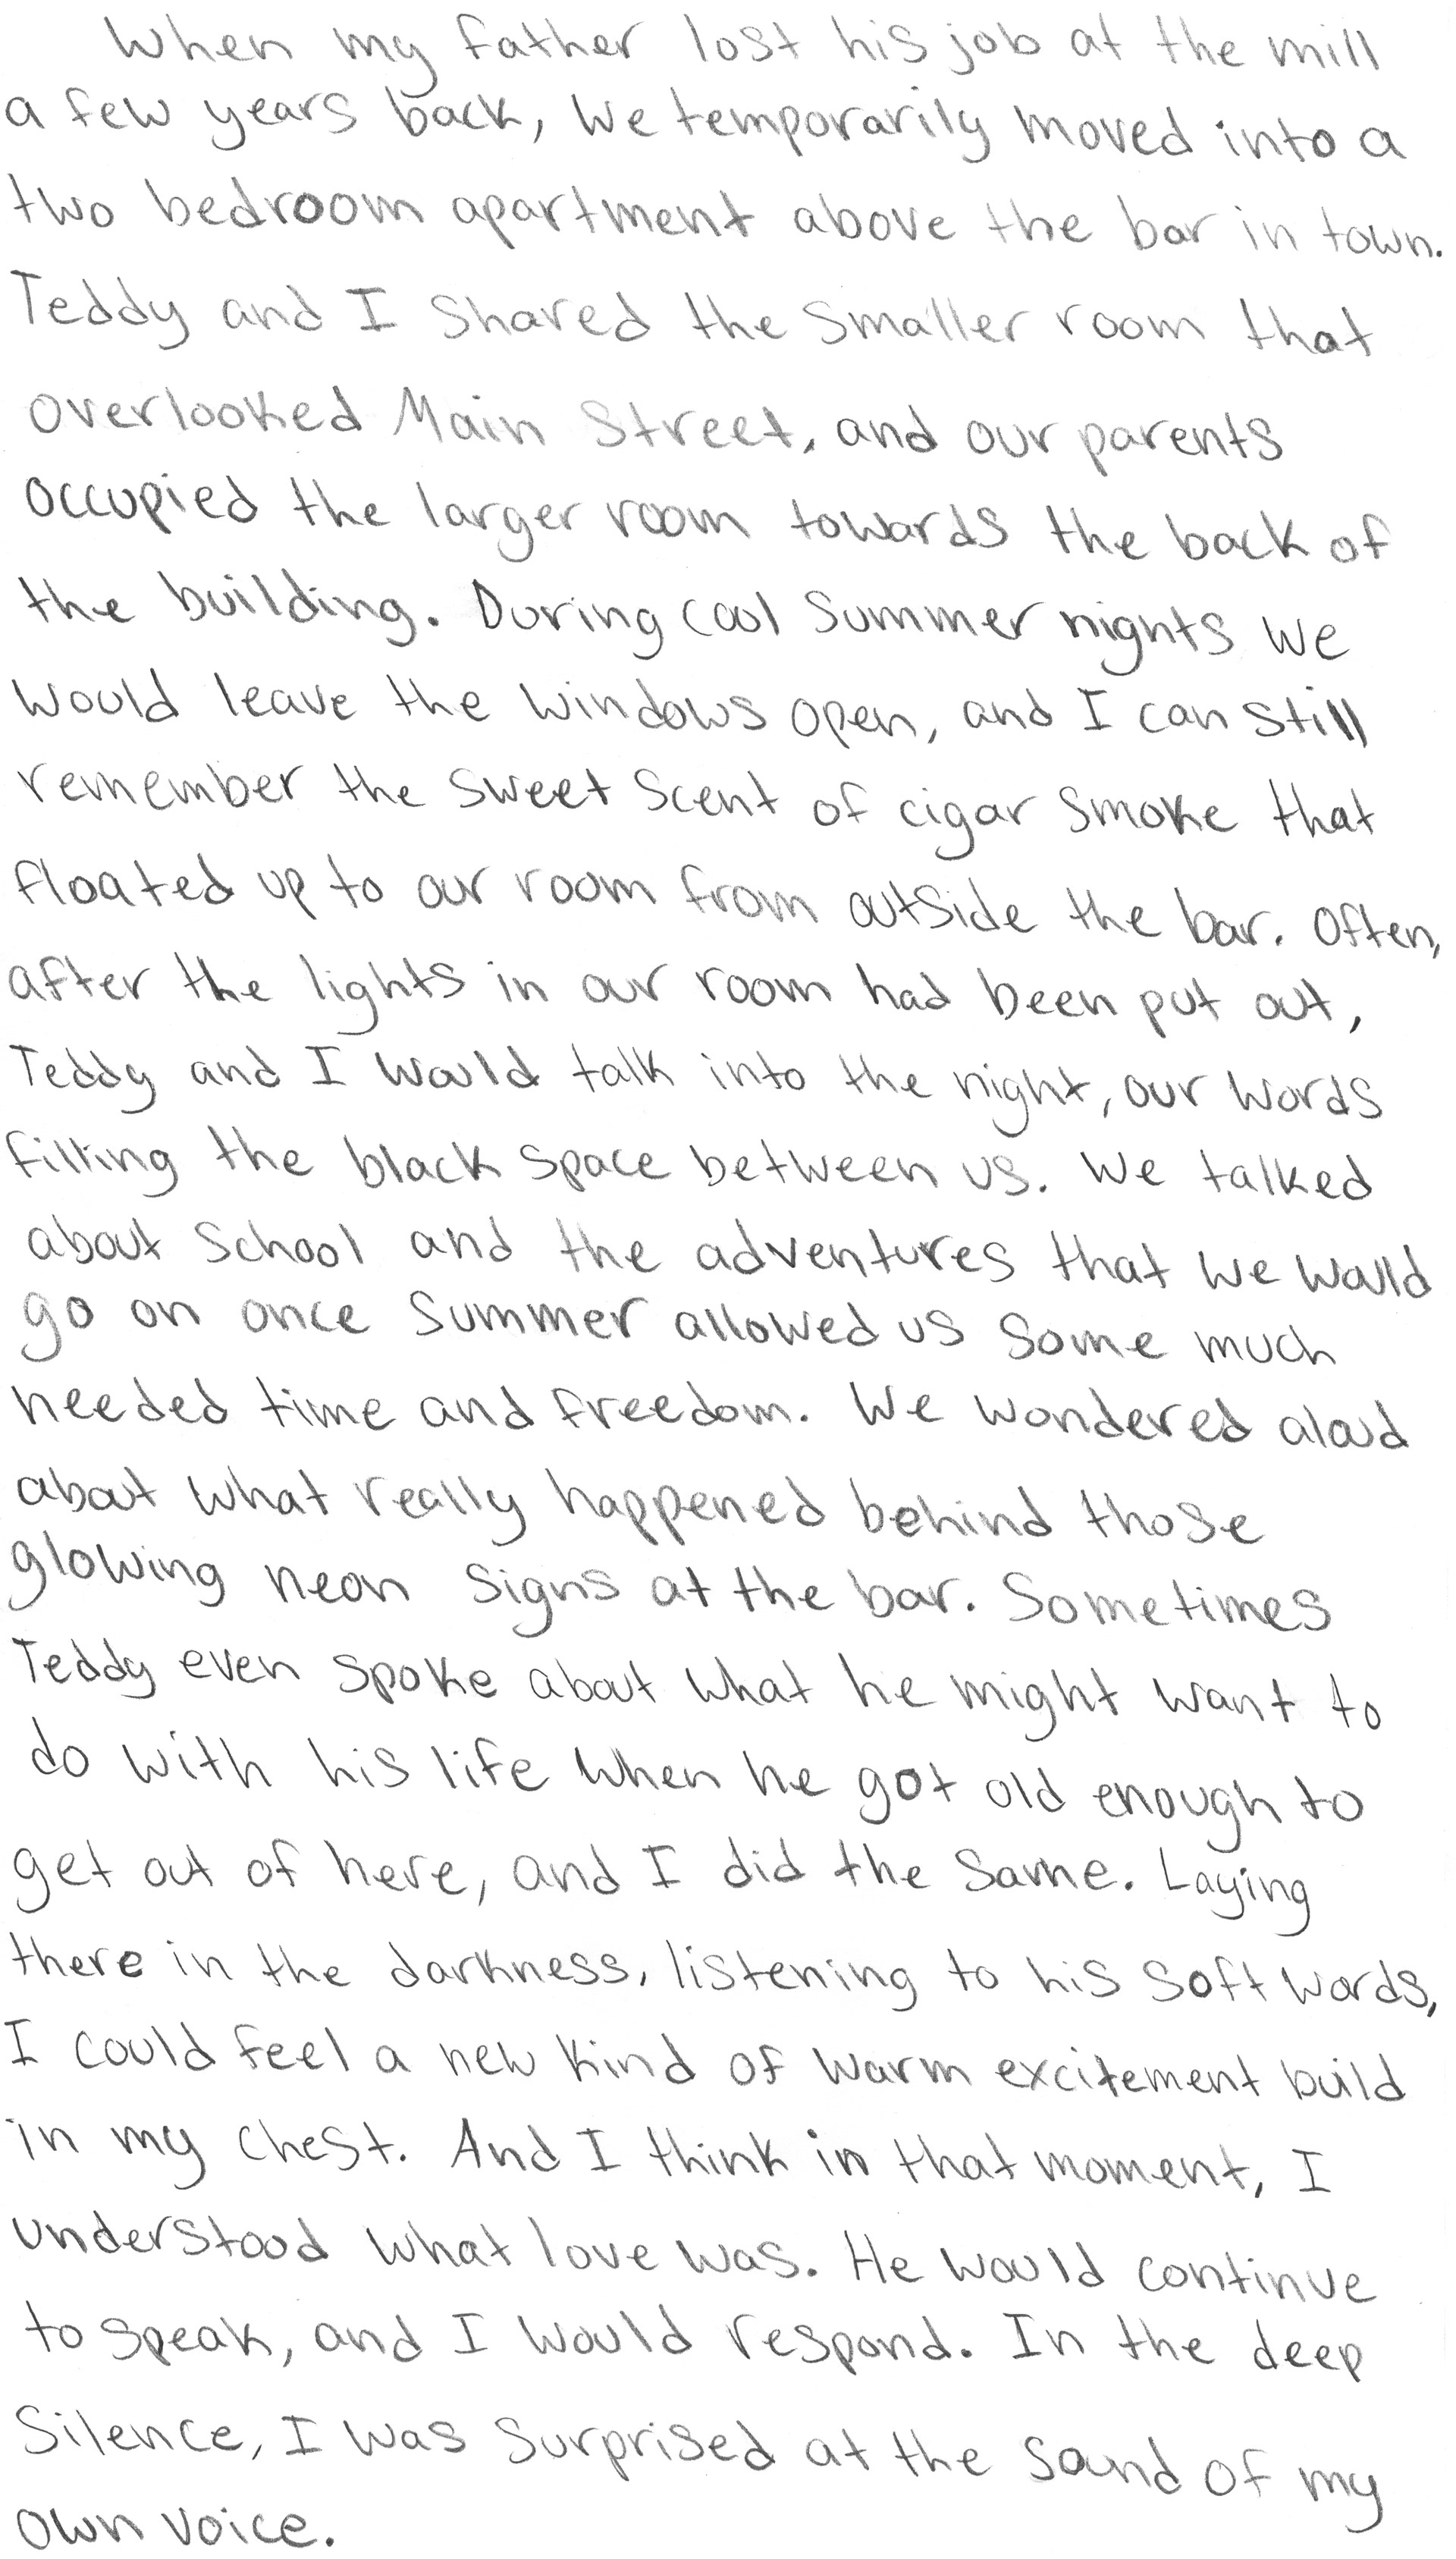 When my father lost his job at the mill
a few years back, we temporarily moved into a
two bedroom apartment above the bar in town.
Teddy and I shared the smaller room that
overlooked Main Street, and our parents
occupied the larger room towards the back of
the building. During cool summer nights we
would leave the windows open, and I can still
remember the sweet scent of cigar smoke that
floated up to our room from outside the bar. Often,
after the lights in our room had been put out,
Teddy and I would talk into the night, our words
filling the black space between us. We talked
about school and the adventures that we would
go on once summer allowed us some much
needed time and freedom. We wondered aloud
about what really happened behind those
glowing neon signs at the bar. Sometimes
Teddy even spoke about what he might want to
do with his life when he got old enough to
get out of here, and I did the same. Laying
there in the darkness, listening to his soft words,
I could feel a new kind of warm excitement build
in my chest. And I think in that moment, I
understood what love was. He would continue
to speak, and I would respond. In the deep
silence, I was surprised at the sound of my
own voice.